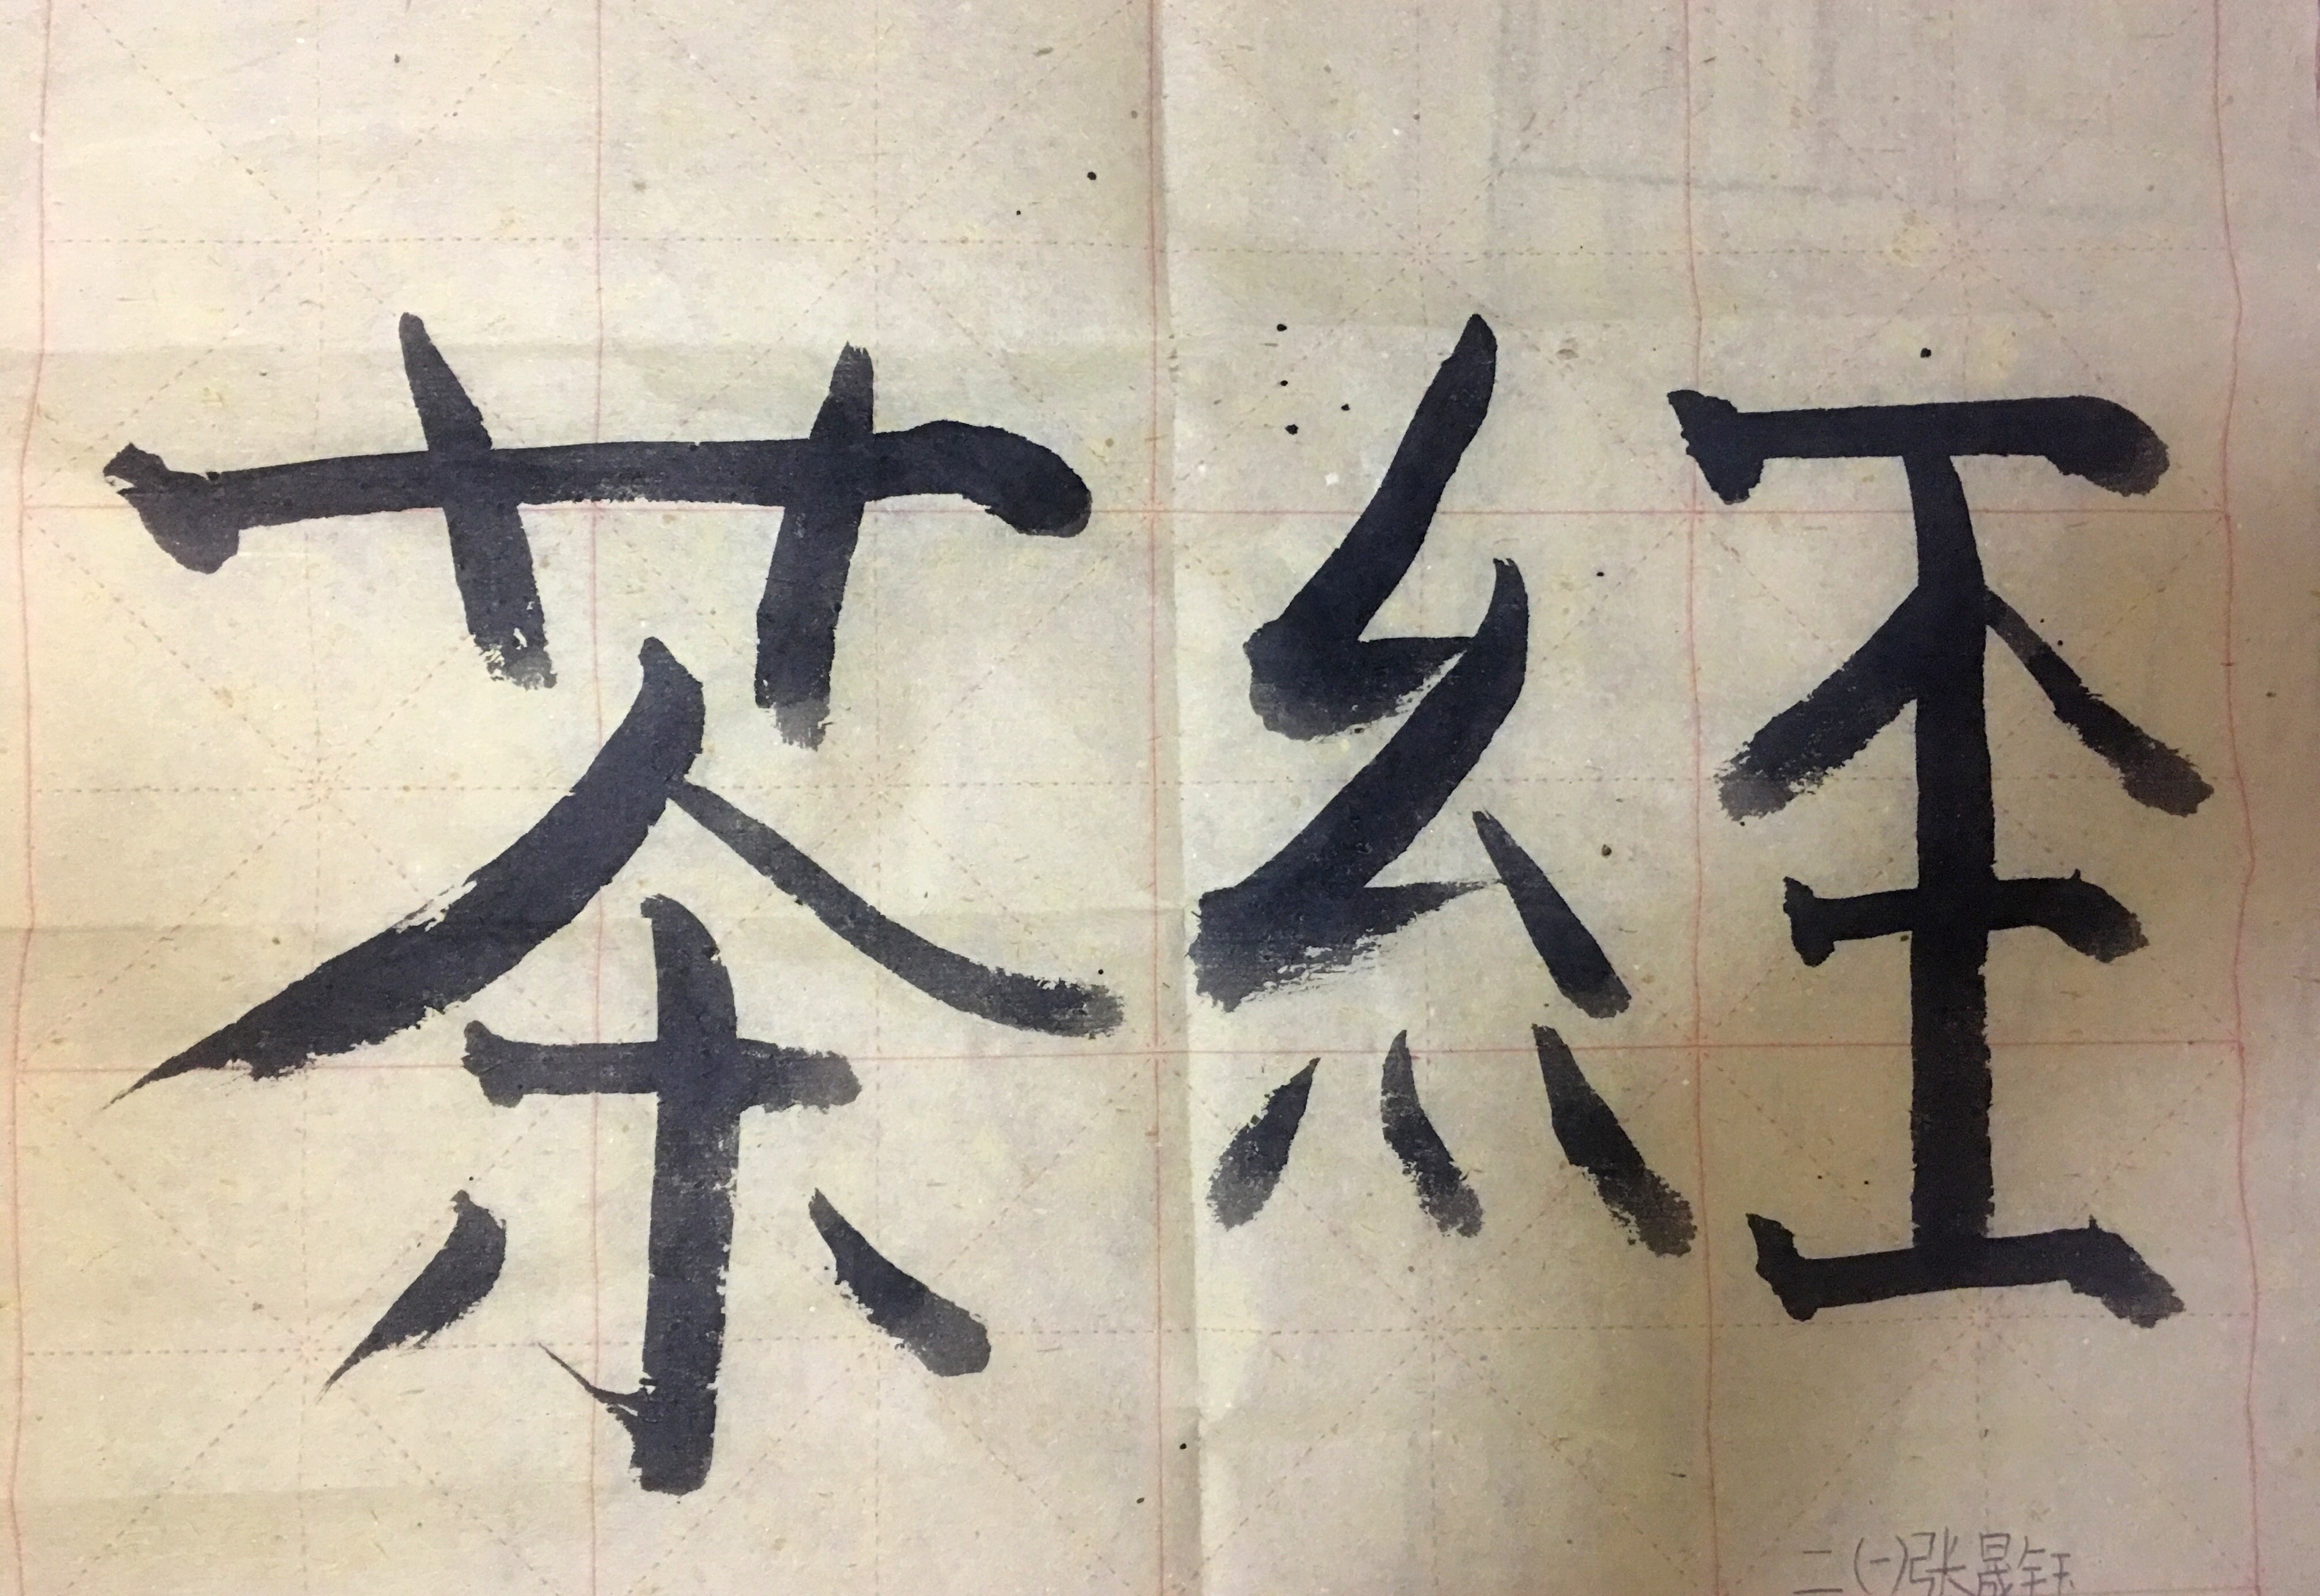 茶經
二(一)张晟钰